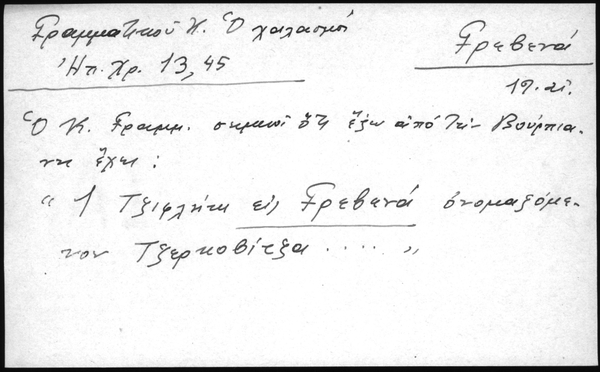 Γραμματικοῦ Κ. Ὁ χαλασμός
Ἠπ. Χρ. 13,45
Γρεβενά
19. αἰ.
Ὁ Κ. Γραμμ. σημειοῖ ὅτι ἔξω ἀπό τήν Βούρμπια-
νη ἔχει :
" 1 Τζιφλήκι εἰς Γρεβενά ὀνομαζόμε-
νον Τζερκοβίτζα ..... "